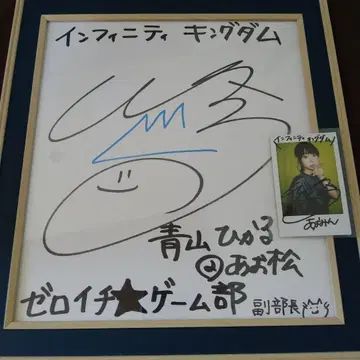 インフィニティ キングダム
インフィニティ キングダム
青山ひかる
@あお松
ゼロイチ★ゲーム部
副部長